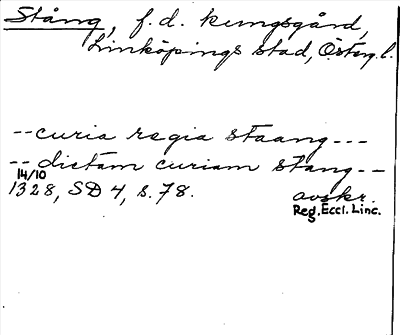 Stång, f.d. kungsgård,
Linköpings stad, Österg.l.
--curia regia staang---
--dictam curiam stang--
14/10
1328, SD 4, s. 78. avskr.
Reg. Eccl. Linc.